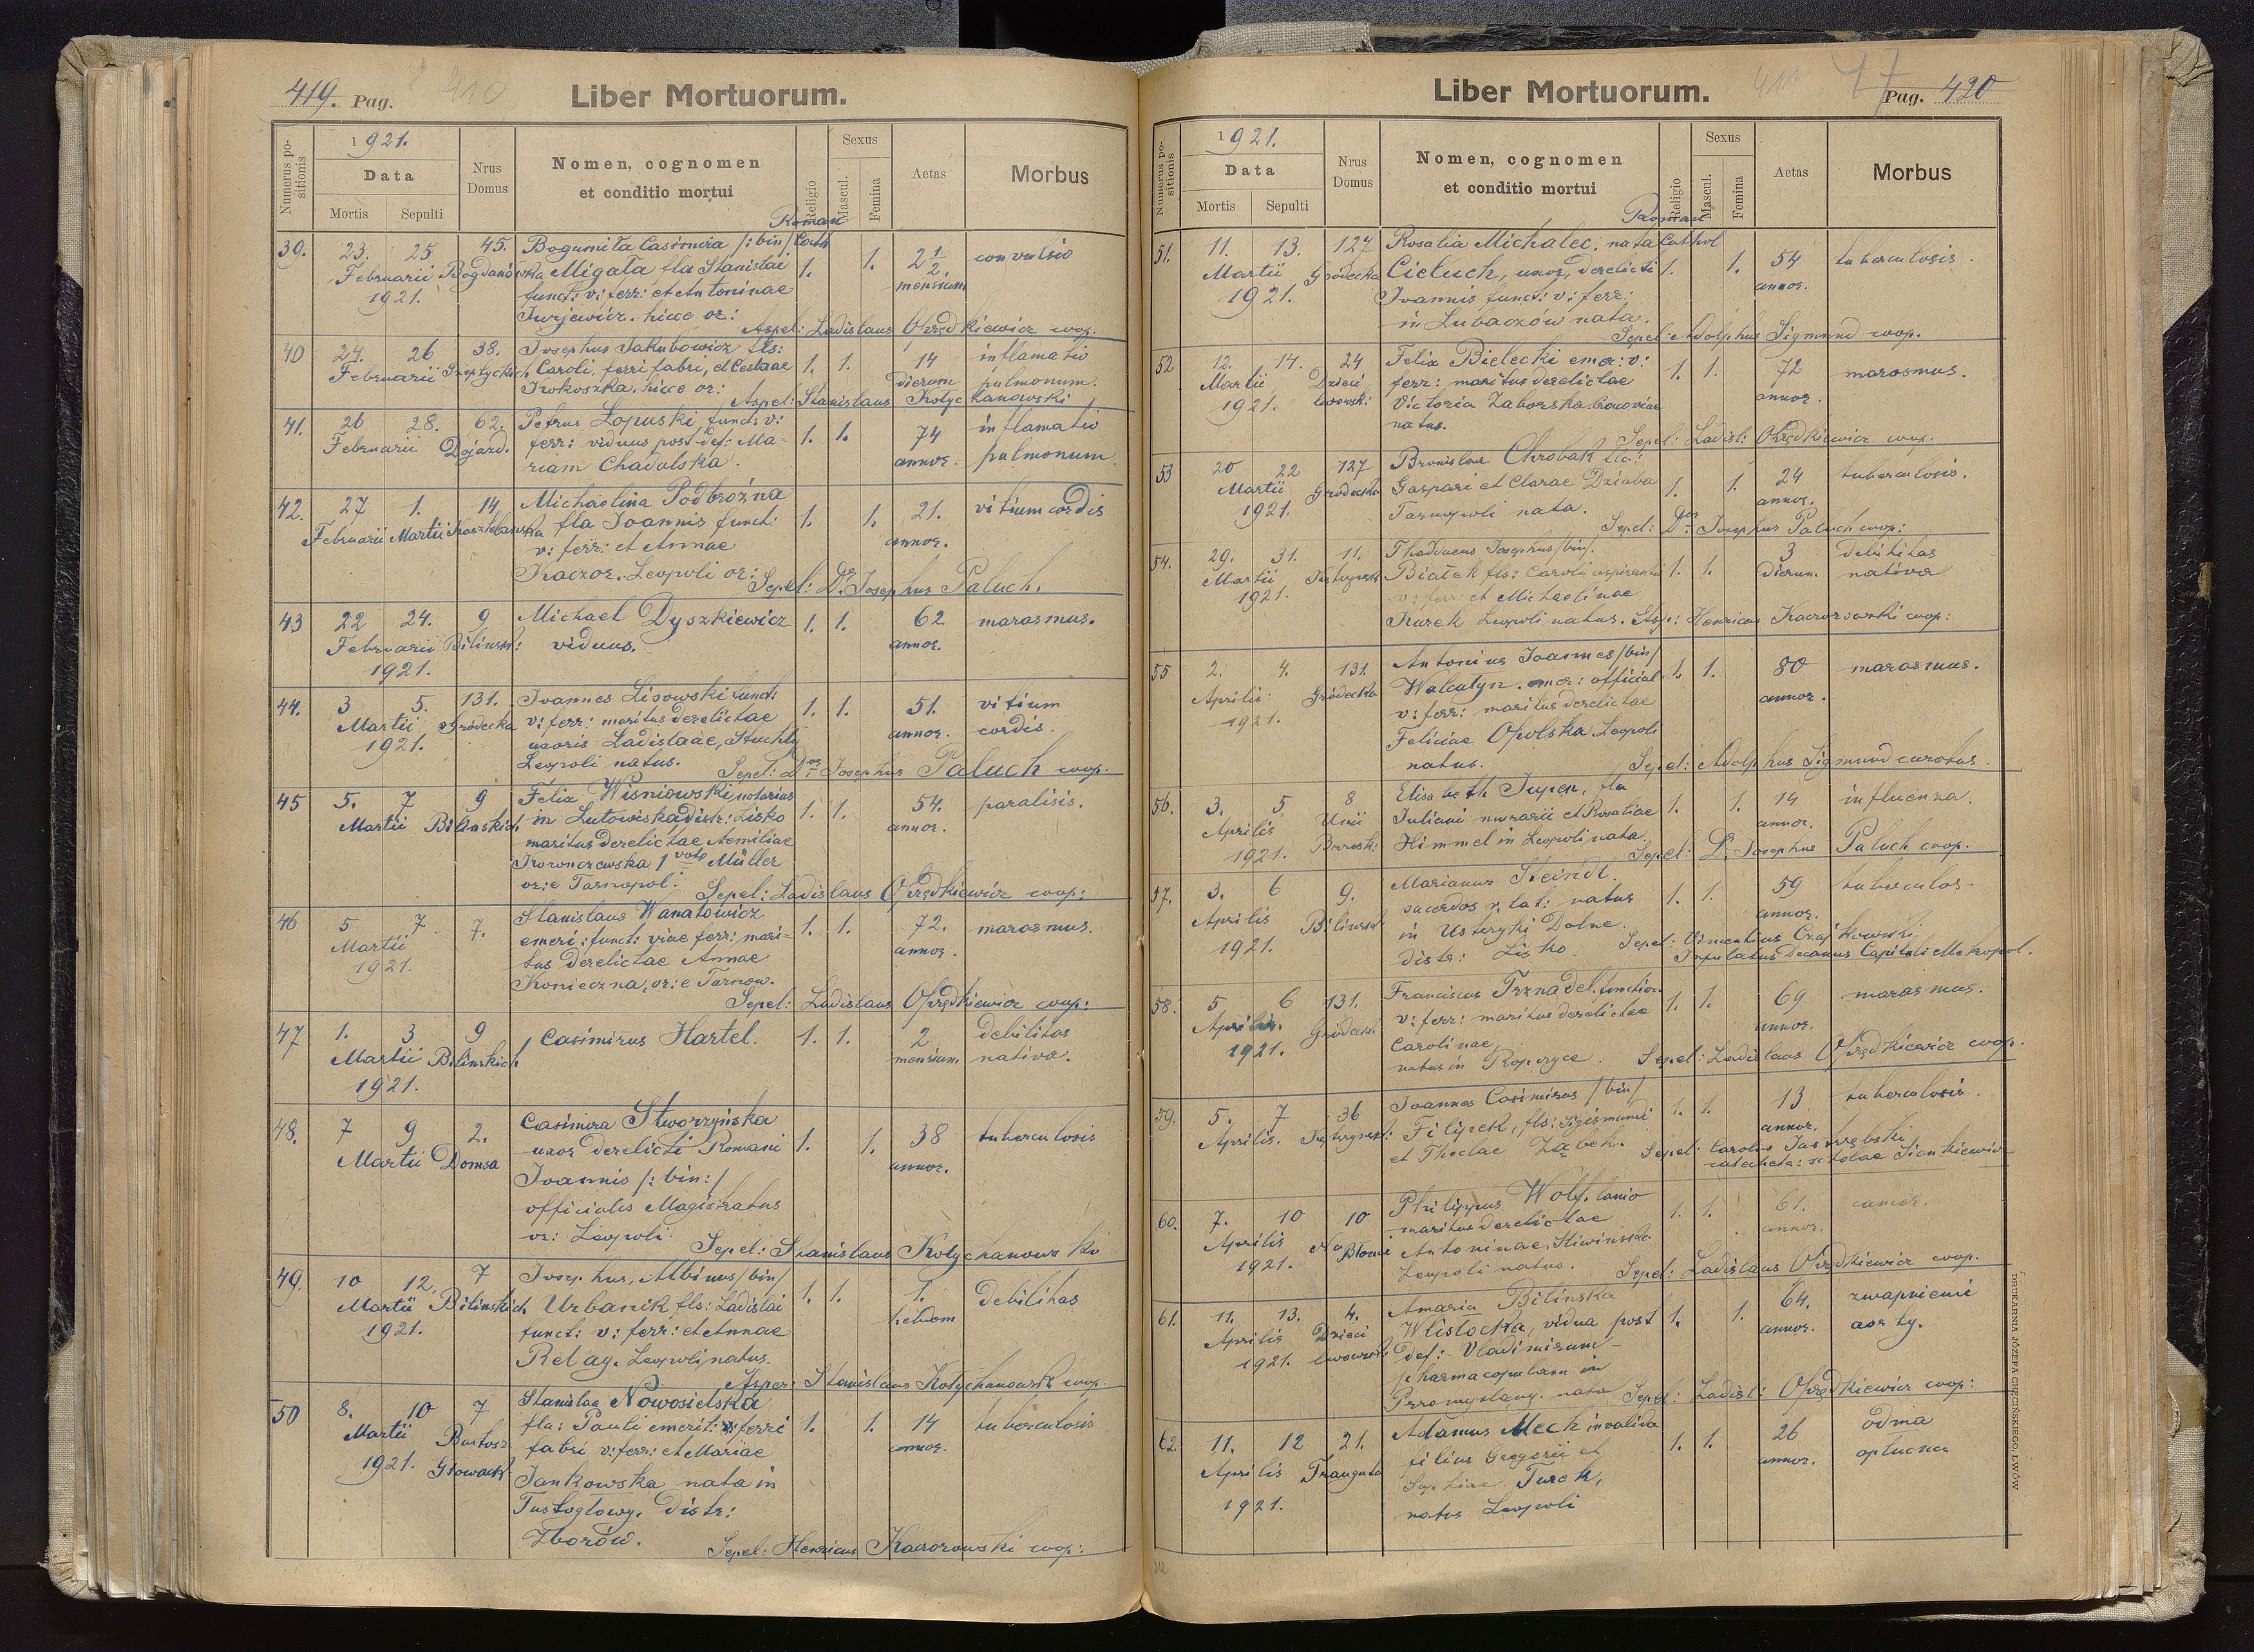 419. Pag. 410
Liber Mortuorum.
Numerus positionis
1921.
Data
Mortis Sepulti
Nrus Domus
Nomen, cognomen
et conditio mortui
Religio
Sexus
Mascul. Femina
Aetas
Morbus
Roman
Cath
39. 23. 25 45. Bogumiła Casimira /:bin/ 1. 1. 2 1/2 convulsio
Februarii Bogdanówka Migała fla Stanislai mensium
1921. funct: v: ferr: et Antoninae
Jurjewicz. hicce or:
Aspel: Ladislaus Obrędkiewicz coop.
40 24. 26 38. Josephus Jakubowicz fls: 1. 1. 14 inflamatio
Februarii Szeptyckich Caroli, ferri fabri, et Ceslaae dierum pulmonum.
Krokoszka. hicce or:
Aspel: Stanislaus Kotychanowski
41. 26 28. 62. Petrus Łopuski, funct: v: 1. 1. 74 inflamatio
Februarii Dojazd. ferr: viduus post def: Ma- annor. pulmonum.
riam Chadalska.
42. 27 1. 14 Michaelina Podbrożna 1. 1. 21. vitium cordis
Februarii Martii Kasztelańska fla Joannis funct: annor.
v: ferr: et Annae
Kaczor. Leopoli or:
Sepel: Dr. Josephus Paluch.
43 22 24. 9 Michael Dyszkiewicz 1. 1. 62 marasmus.
Februarii Bilinsk: viduus. annor.
1921.
44. 3 5. 131. Joannes Lisowski funct: 1. 1. 51. vitium
Martii Gródecka v: ferr: maritus derelictae annor. cordis.
1921. uxoris Ladislaae, Stuchły
Leopoli natus.
Sepel: Dr. Josephus Paluch coop.
45 5. 7 9 Felix Wisniowski notarius 1. 1. 54. paralisis.
Martii Bilinskich. in Lutowiska distr: Lisko annor.
maritus derelictae Aemiliae
Koronczewska 1 voto Müller
or: e Tarnopol:
Sepel: Ladislaus Obrędkiewicz coop:
46 5 7 7. Stanislaus Wanatowicz 1. 1. 72. marasmus.
Martii emeri: funct: viae ferr: mari- annor.
1921. tus derelictae Annae
Konieczna, or: e Tarnow.
Sepel: Ladislaus Obrędkiewicz coop:
47 1. 3 9 Casimirus Hartel. 1. 1. 2 debilitas
Martii Bilinskich mensium nativa.
1921.
48. 7 9 2. Casimira Stworzyńska 1. 1. 38 tuberculosis
Martii Domsa uxor derelicti Romani annor.
Joannis /:bin:/
officialis Magistratus
or: Leopoli.
Sepel: Stanislaus Kotychanowski
49. 10 12. 7 Josephus, Albinus /bin/ 1. 1. 1. debilitas
Martii Bilinskich Urbanik fls: Ladislai hebdom
1921. funct: v: ferr: et Annae
Relag. Leopoli natus.
Asper: Stanislaus Kotychanowski coop.
50 8. 10 7 Stanislae Nowosielska 1. 1. 14 tuberculosis
Martii Bartosz fla: Pauli emerit: ferri annor.
1921. Głowack. fabri v: ferr: et Mariae
Jankowska nata in
Tustogłowy, distr:
Zborów.
Sepel: Henricus Kaczorowski coop:
Liber Mortuorum.
411 47 Pag. 420
Numerus positionis
1921.
Data
Mortis Sepulti
Nrus Domus
Nomen, cognomen
et conditio mortui
Religio
Sexus
Mascul. Femina
Aetas
Morbus
Roman
Cathol
51. 11. 13. 127 Rosalia Michalec, nata 1. 1. 54 tuberculosis.
Martii Gródecka Cieluch, uxor, derelicti annor.
1921. Joannis funct: v: ferr:
in Lubaczów nata.
Sepel: Adolphus Sigmund coop.
52 12. 14. 24 Felix Bielecki emer: v: 1. 1. 72 marasmus.
Martii Dzieci ferr: maritus derelictae annor.
1921. lwowski: Victoria Zaborska.
natus.
Sepel: Ladisl: Obrędkiewicz coop.
53 20 22 127 Bronislae Chrobak fla: 1. 1. 24 tuberculosis.
Martii Gródecka Gaspari et Clarae Dziuba annor.
1921. Tarnopoli nata.
Sepel: Dr Josephus Paluch coop:
54. 29. 31. 11. Thaddaeus Josephus /bin/. 1. 1. 3 debilitas
Martii Białek fls: Caroli aspiranti dierum. nativa
1921. v: ferr: et Michaelinae
Kurek Leopoli natus. Asp: Henricus Kaczorowski coop:
55 2. 4. 131. Antonius Joannes /bin/ 1. 1. 80 marasmus.
Aprilis: Gródecka Walcutyn. emer: official: annor.
1921. v: ferr: maritus derelictae
Feliciae Opolska. Leopoli
natus.
Sepel: Adolphus Sigmund curatus.
56. 3. 5. 8 Elisabeth Jupen, fla 1. 1. 14 influenza.
Aprilis Unii Juliani murarii et Rosaliae annor.
1921. Brzesk: Himmel in Leopoli nata.
Sepel: Dr. Josephus Paluch coop.
57. 3. 6 9. Marianus Steindl. 1. 1. 59 tuberculos.
Aprilis Bilinsk: sacerdos r. lat: natus annor.
1921. in Ustrzyki Dolne.
distr: Lisko.
Sepel: Vincentius Czajkowski
Infulatus Decanus Capituli Metropol.
58. 5 6 131. Franciscus Trznadel. function 1. 1. 69 marasmus.
Aprilis. Gródecka v: ferr: maritus derelictae annor.
1921. Carolinae
natus in Ropczyce.
Sepel: Ladislaus Obrędkiewicz coop.
59. 5. 7 36 Joannes Casimirus /bin/ 1. 1. 13 tuberculosis.
Aprilis. Kętrzyńsk: Filipek, fls: Sigismundi annor.
et Theclae Ząbek.
Sepel: Carolus Jastrzębski
catecheta: scholae Sienkiewicz
60. 7. 10 10 Philippus Wolf. lanio 1. 1. 61. cancer.
Aprilis Na Błonie maritus derelictae annor.
1921. Antoninae, Sliwińska
Leopoli natus.
Sepel: Ladislaus Obrędkiewicz coop.
61. 11. 13. 4. Amaria Bilinska 1. 1. 64. zwapnienie
Aprilis Dzieci Wlislocka, vidua post annor. aorty.
1921. lwowsk: def: Vladimirum-
pharmacopolam in
Przemyslany. nata
Sepel: Ladisl: Obrędkiewicz coop:
62. 11. 12 21. Adamus Mech invalida 1. 1. 26 odma
Aprilis Traugutta filius Gregorii et annor. opłucna
1921. Sophiae Turek,
natus Leopoli
DRUKARNIA JÓZEFA CHĘCIŃSKIEGO, LWÓW